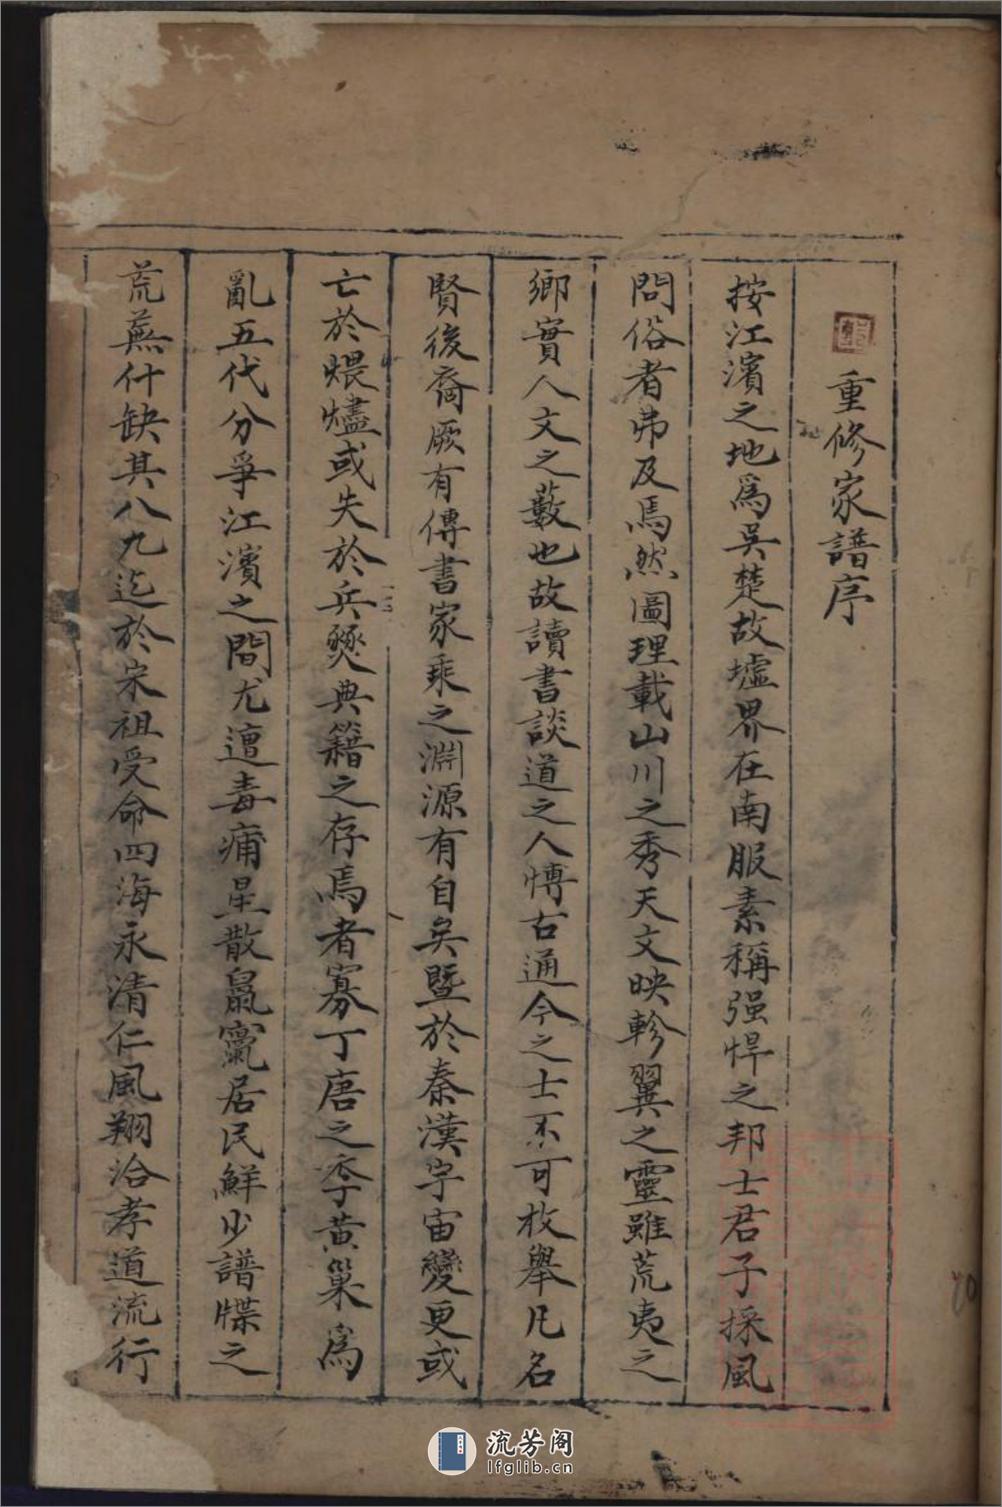 重修家譜序
按江濱之地爲吳楚故墟界在南服素稱强悍之邦士君子採風
問俗者弗及焉然圖理載山川之秀天文映軫翼之靈雖荒夷之
鄉實人文之藪也故讀書談道之人博古通今之士不可枚舉凡名
賢後裔厥有傳書家乘之淵源有自矣暨於秦漢宇宙變更或
亡於煨燼或失於兵燹典籍之存焉者寡丁唐之季黃巢爲
亂五代分爭江濱之間尤遭毒痡星散鼠竄居民鮮少譜牒之
荒蕪什缺其八九迄於宋祖受命四海永清仁風翔洽孝道流行
流芳阁
lfglib.cn